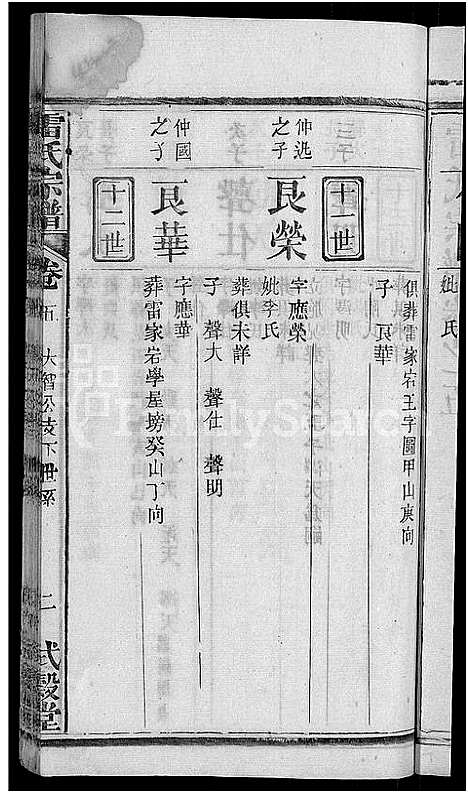 俱葬雷家宕王字圖甲山庚向
子 艮華
十一世
仲
之子
艮榮
字應榮
妣李氏
葬俱未詳
子 聲大 聲仕 聲明
十二世
仲國
之子
艮華
字應華
葬雷家宕學屋塝癸山丁向
雷氏宗譜
卷
五 大智公支下世系
二
式穀堂
FamilySearch